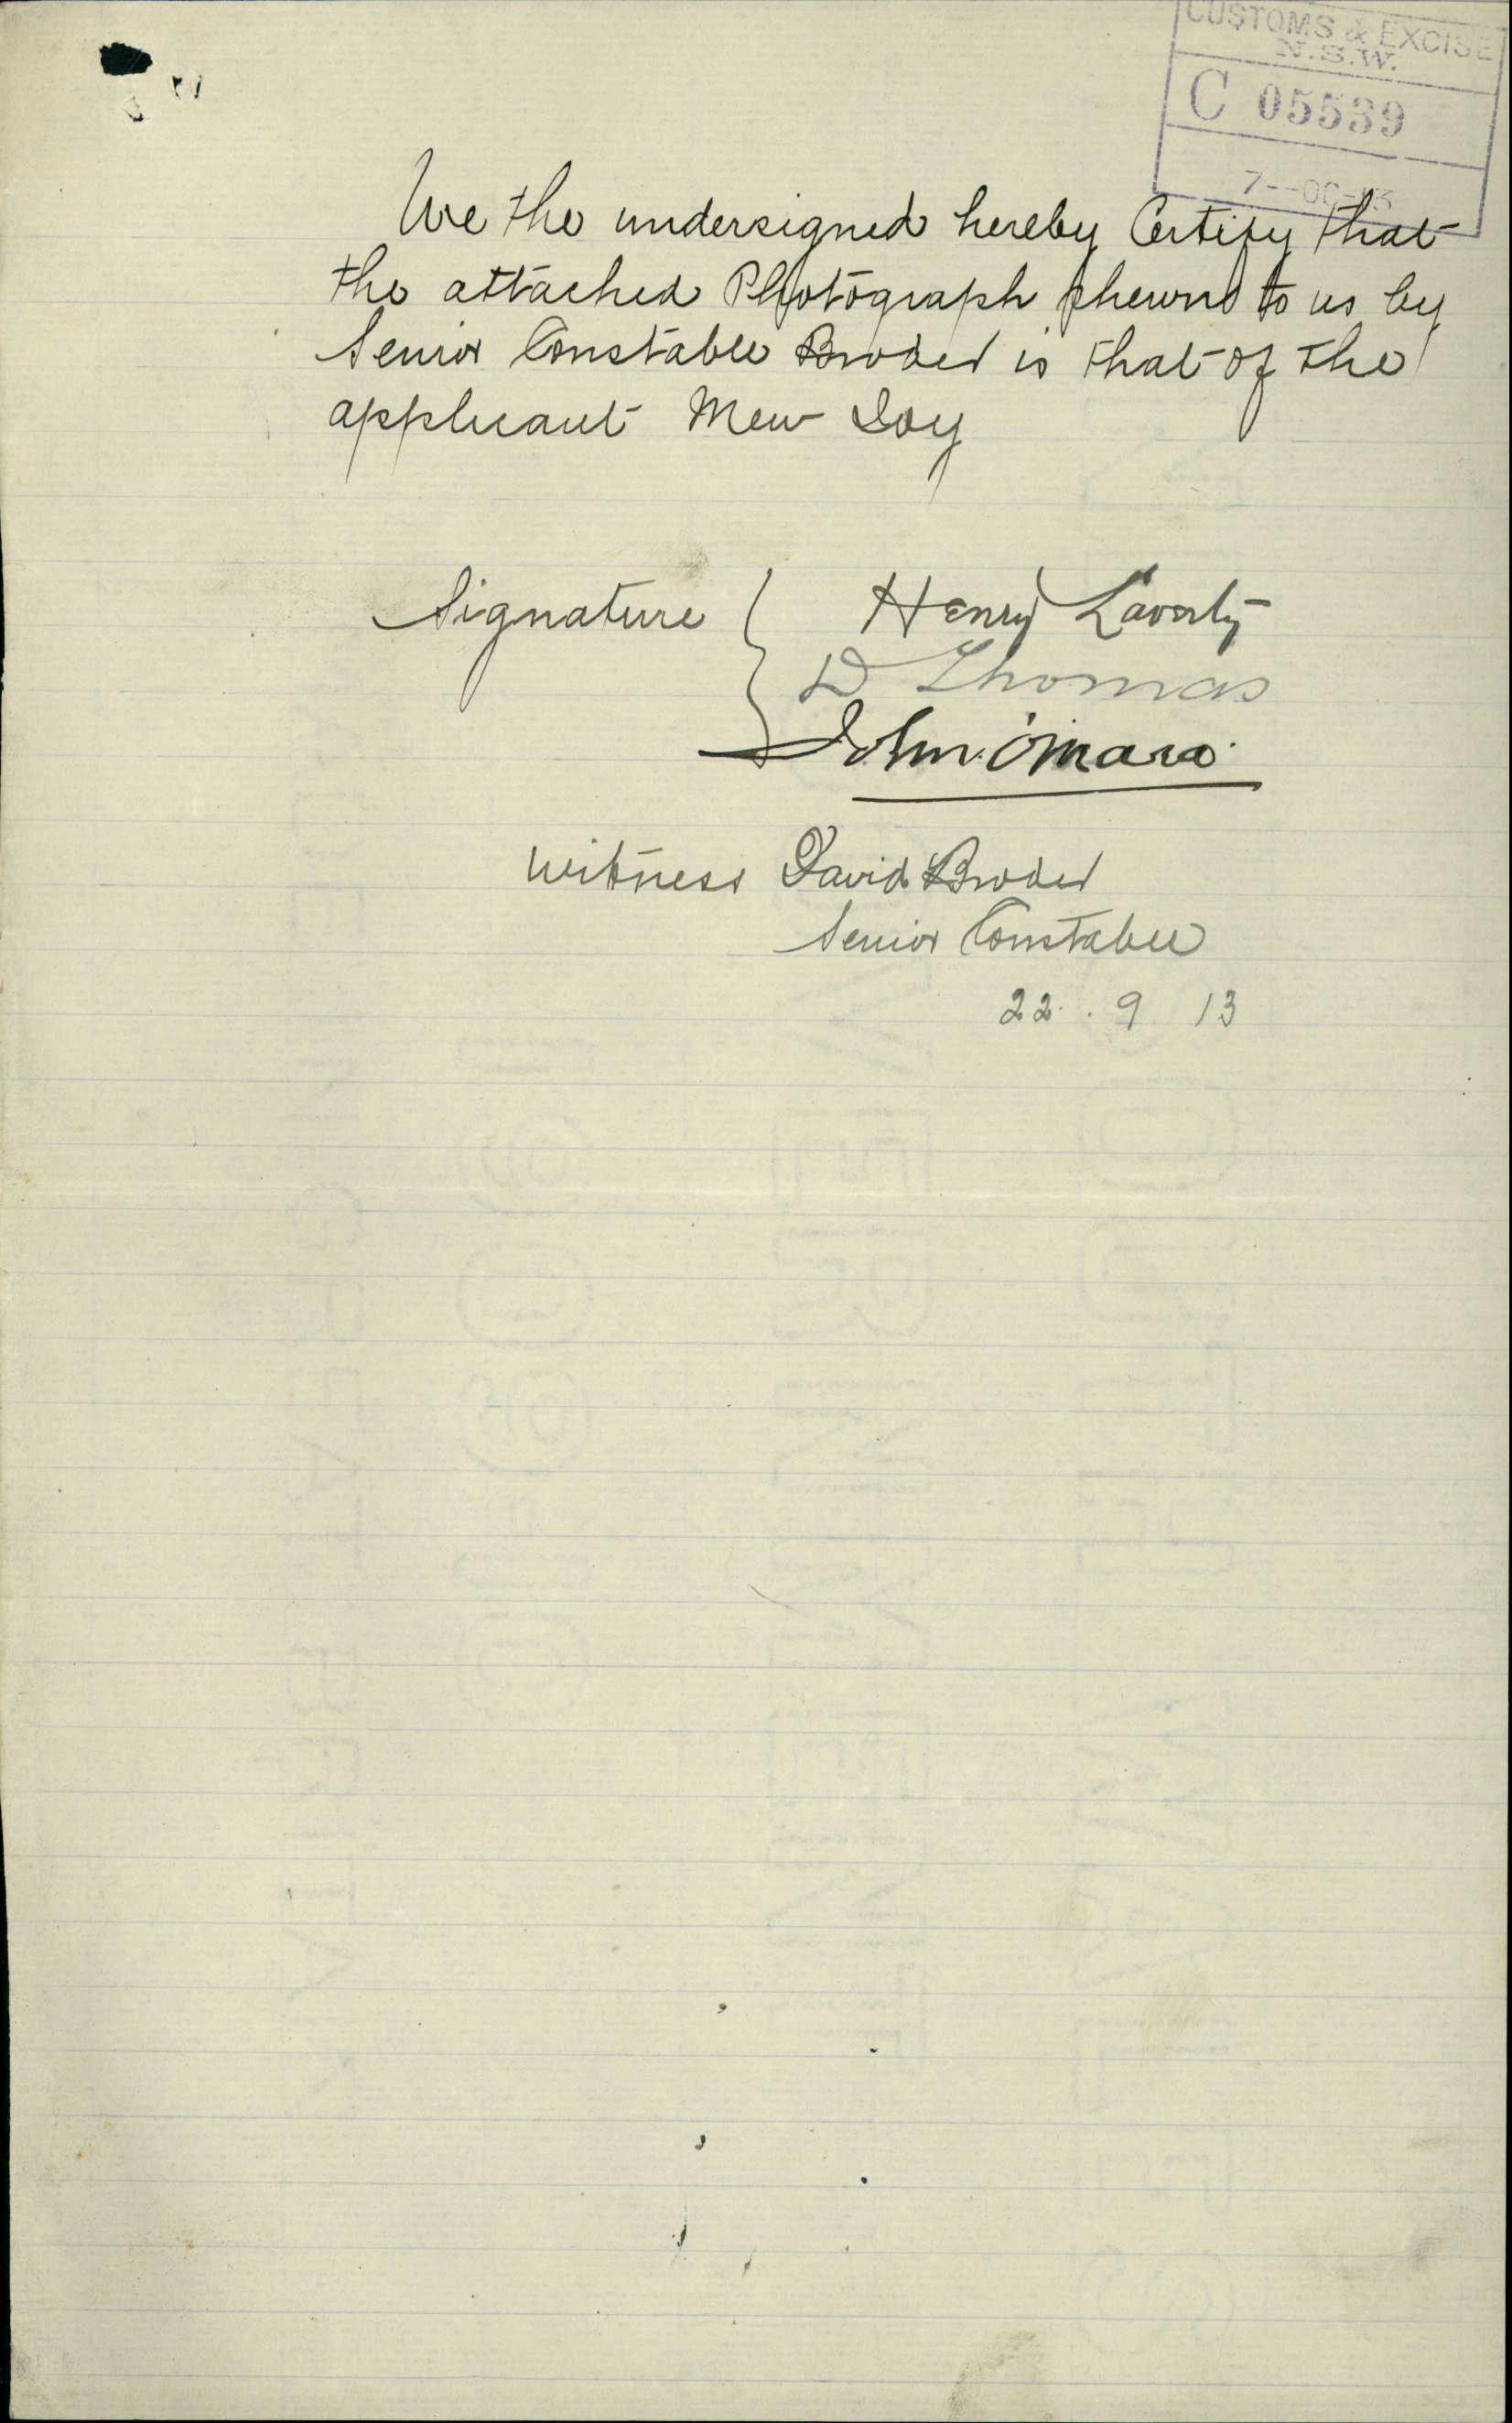 CUSTOMS & EXCISE
N.S.W.
C 05539
7--OC-13
We the undersigned hereby Certify that
the attached Photograph shewn to us by
Senior Constable Broder is that of the
applicant Mew Doy
Signature { Henry Laverty
D Thomas
John O'Mara
Witness David Broder
Senior Constable
22 . 9 13